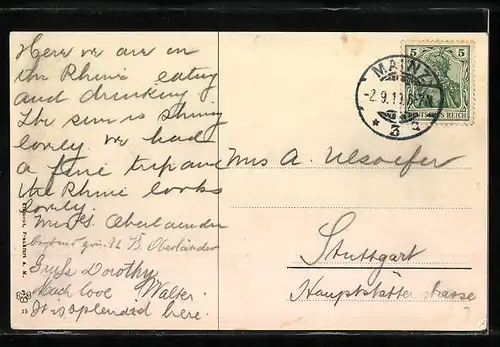 Here we are on
the Rhine eating
and drinking
The sun is shining
lovely. We had
a fine trip and
the Rhine looks
lovely.
Mrs B. Oberlaender
Oberländer
Grüße Dorothy
Much love Walter
It is splendid here.
Mrs A.
Stuttgart
Hauptstätter strasse
5 5
DEUTSCHES REICH
MAINZ
-2.9.1
* 3
Frankfurt a. M.
15